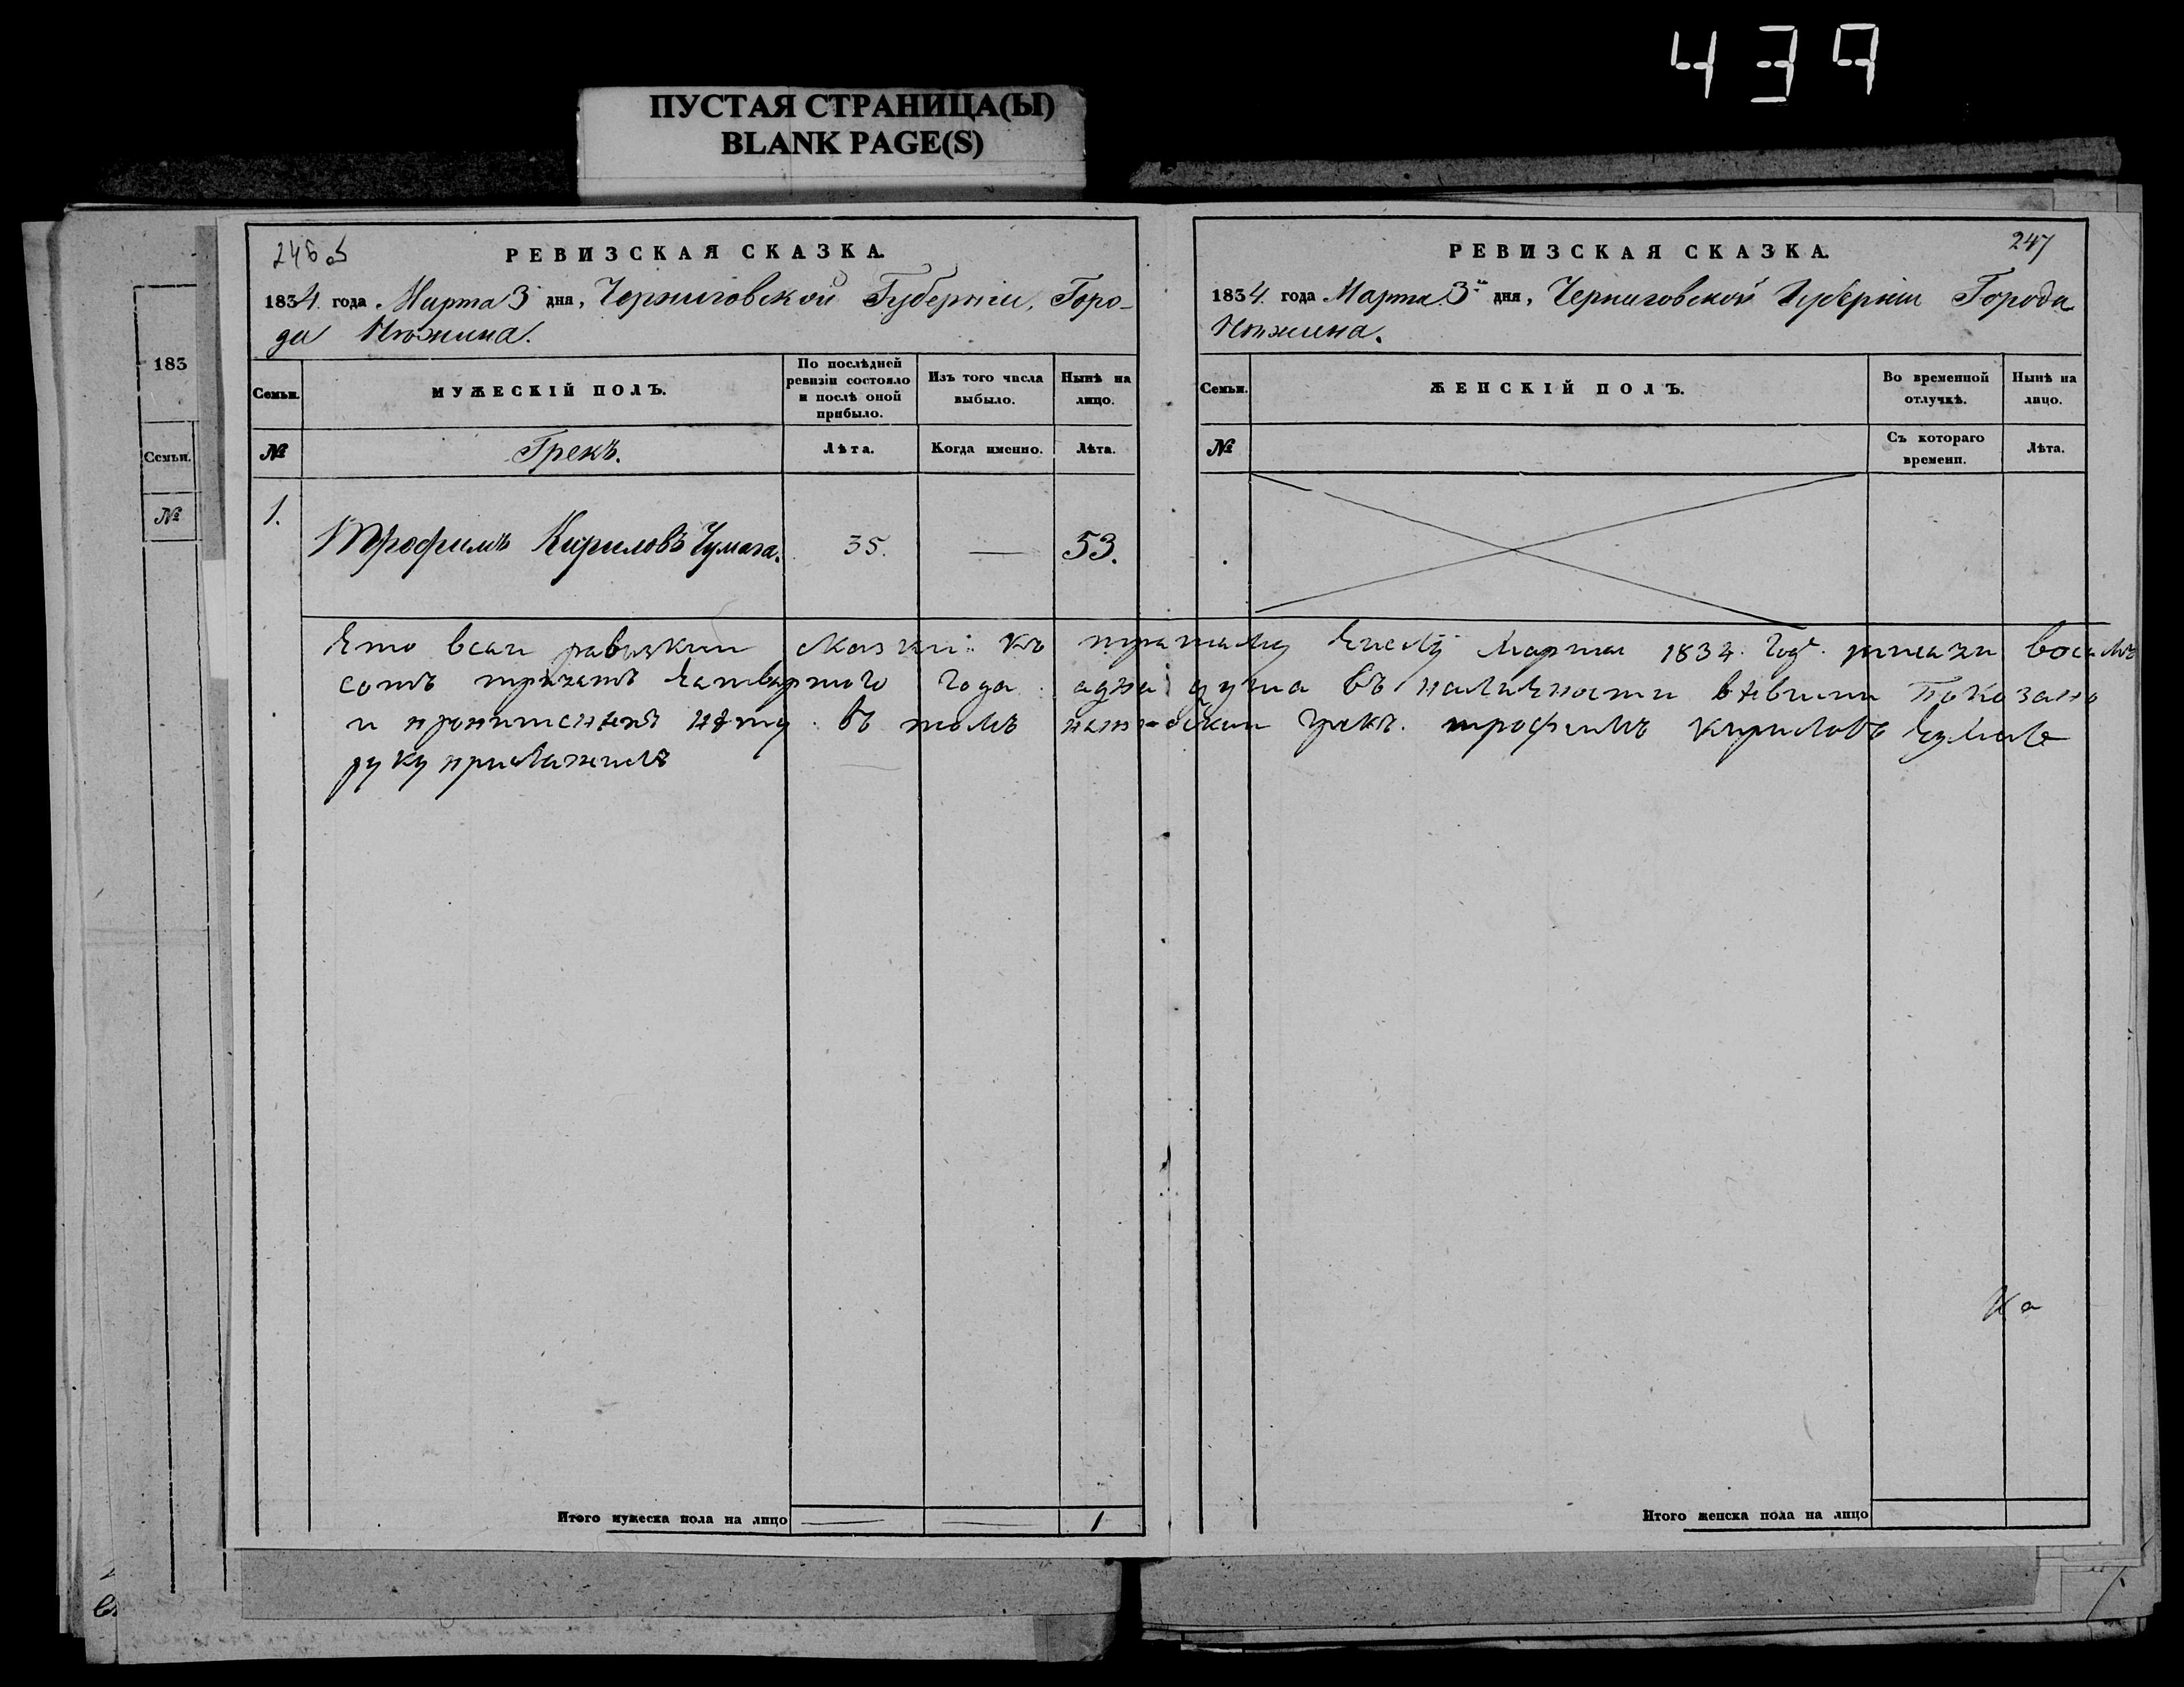 439
ПУСТАЯ СТРАНИЦА(Ы)
BLANK PAGE(S)
183
Семьи.
№
246 об
РЕВИЗСКАЯ СКАЗКА.
1834 года Марта 3 дня, Черниговской Губернии, Горо-
да Нѣжина.
Семьи.
МУЖЕСКІЙ ПОЛЪ.
По послѣдней ревизіи состояло и послѣ оной прибыло.
Изъ того числа выбыло.
Нынѣ на лицо.
№
Грекъ.
Лѣта.
Когда именно.
Лѣта.
1.
Трофимъ Кириловъ Чумага.
35.
—
53.
247
РЕВИЗСКАЯ СКАЗКА.
1834 года Марта 3 дня, Черниговской Губерніи Города
Нѣжина.
Семьи.
ЖЕНСКІЙ ПОЛЪ.
Во временной отлучкѣ.
Нынѣ на лицо.
№
Съ котораго времени.
Лѣта.
что всей сказки къ числу марта 1834 год восемъ
сотъ года адна душа въ наличности показано
и нѣту въ томъ грекъ трофимъ кириловъ
руку приложилъ
Итого мужеска пола на лицо — — 1
Итого женска пола на лицо